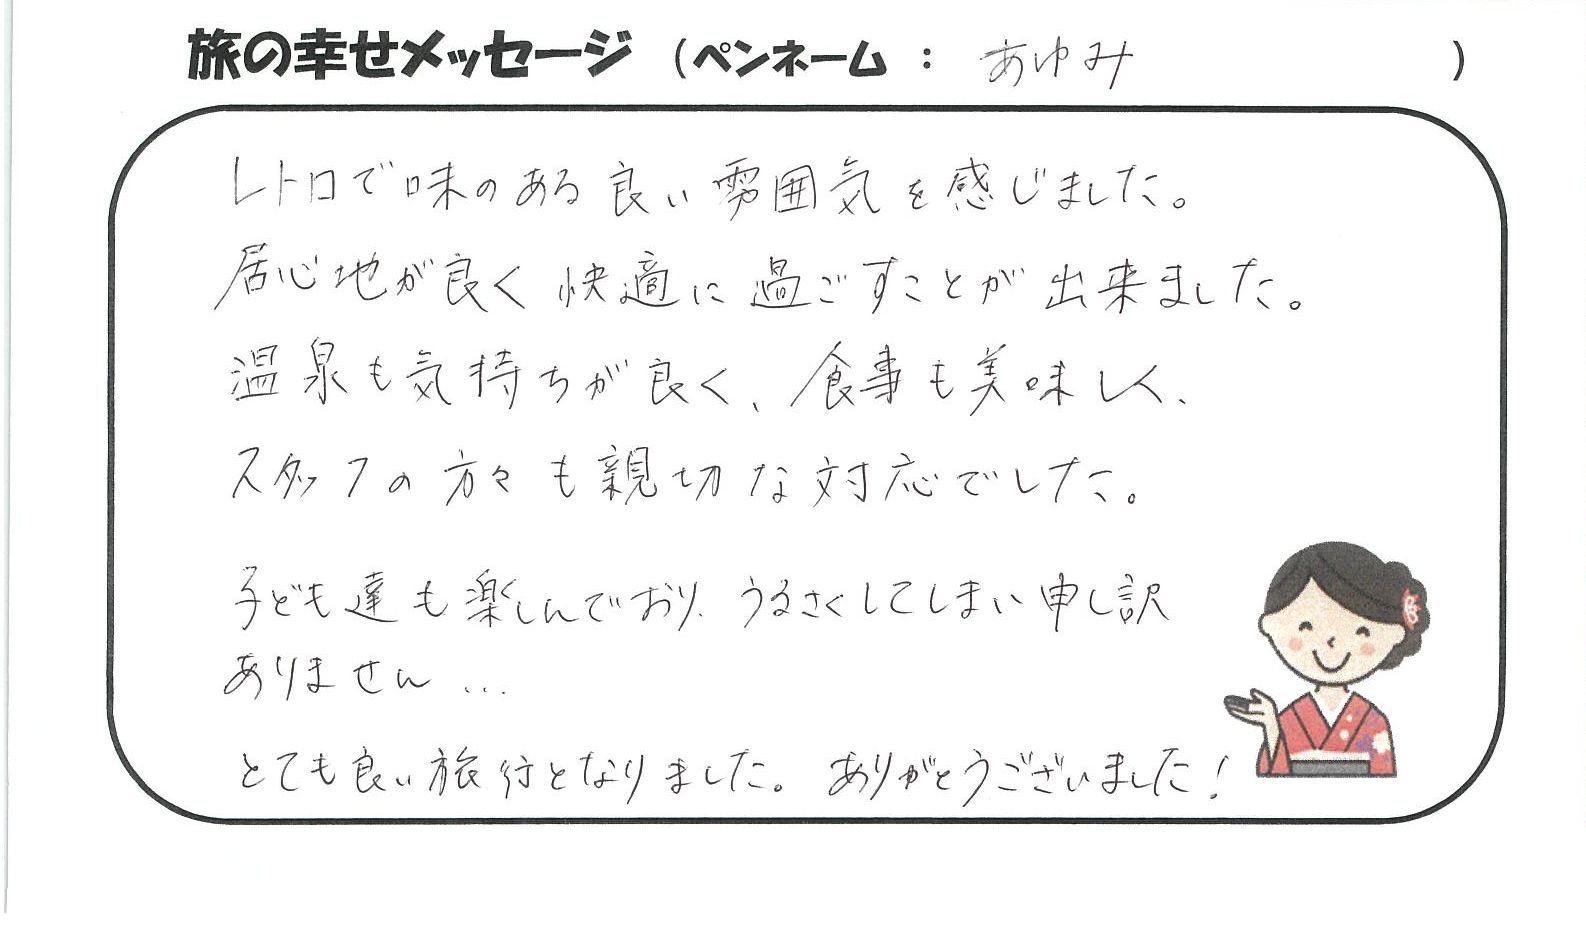 旅の幸せメッセージ （ペンネーム ： あゆみ ）
レトロで味のある良い雰囲気を感じました。
居心地が良く快適に過ごすことが出来ました。
温泉も気持ちが良く、食事も美味しく、
スタッフの方々も親切な対応でした。
子ども達も楽しんでおり、うるさくしてしまい申し訳
ありません…
とても良い旅行となりました。ありがとうございました！